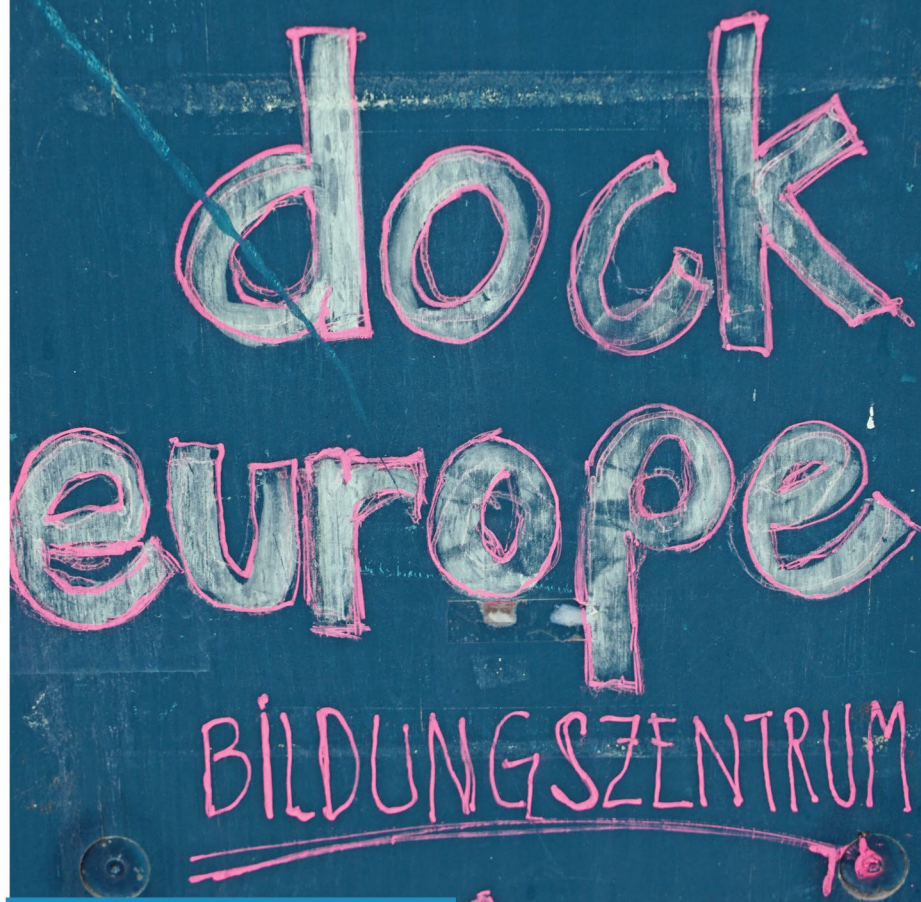 dock
europe
BiLDUNGSZENTRUM